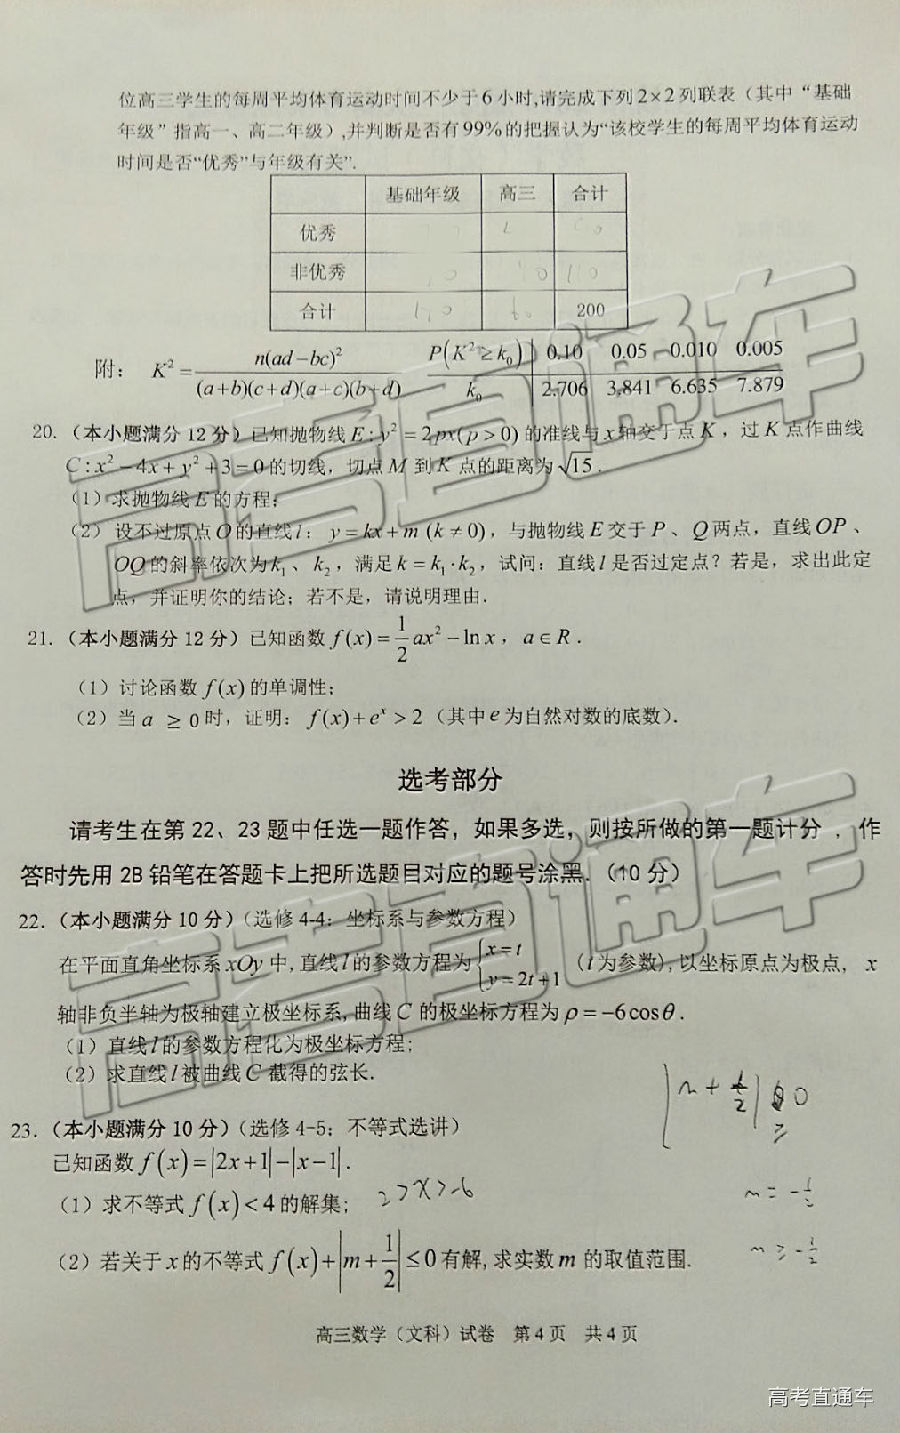 位高三学生的每周平均体育运动时间不少于6小时,请完成下列2×2列联表（其中“基础
年级”指高一、高二年级）,并判断是否有99%的把握认为“该校学生的每周平均体育运动
时间是否“优秀”与年级有关”.
基础年级 高三 合计
优秀
非优秀 110
合计 200
附： K²=n(ad-bc)²/((a+b)(c+d)(a+c)(b+d)) P(K²≥k₀) 0.10 0.05 0.010 0.005
k₀ 2.706 3.841 6.635 7.879
20.（本小题满分12分）已知抛物线E:y²=2px(p>0)的准线与x轴交于点K，过K点作曲线
C:x²-4x+y²+3=0的切线，切点M到K点的距离为√15.
（1）求抛物线E的方程；
（2）设不过原点O的直线l：y=kx+m (k≠0)，与抛物线E交于P、Q两点，直线OP、
OQ的斜率依次为k₁、k₂，满足k=k₁·k₂，试问：直线l是否过定点？若是，求出此定
点，并证明你的结论；若不是，请说明理由.
21.（本小题满分12分）已知函数f(x)=1/2ax²-ln x，a∈R.
（1）讨论函数f(x)的单调性；
（2）当a ≥0时，证明：f(x)+eˣ>2（其中e为自然对数的底数）.
选考部分
请考生在第22、23题中任选一题作答，如果多选，则按所做的第一题计分，作
答时先用2B铅笔在答题卡上把所选题目对应的题号涂黑.（10分）
22.（本小题满分10分）（选修4-4：坐标系与参数方程）
在平面直角坐标系xOy中,直线l的参数方程为{x=t y=2t+1（t为参数）,以坐标原点为极点，x
轴非负半轴为极轴建立极坐标系,曲线C的极坐标方程为ρ=-6cosθ.
（1）直线l的参数方程化为极坐标方程；
（2）求直线l被曲线C截得的弦长.
23.（本小题满分10分）（选修4-5：不等式选讲）
已知函数f(x)=|2x+1|-|x-1|.
（1）求不等式f(x)<4的解集； 2>x>-6
m=-1/2
（2）若关于x的不等式f(x)+|m+1/2|≤0有解,求实数m的取值范围.
m≥-1/2
高三数学（文科）试卷 第4页 共4页
高考直通车
高考直通车
高考直通车